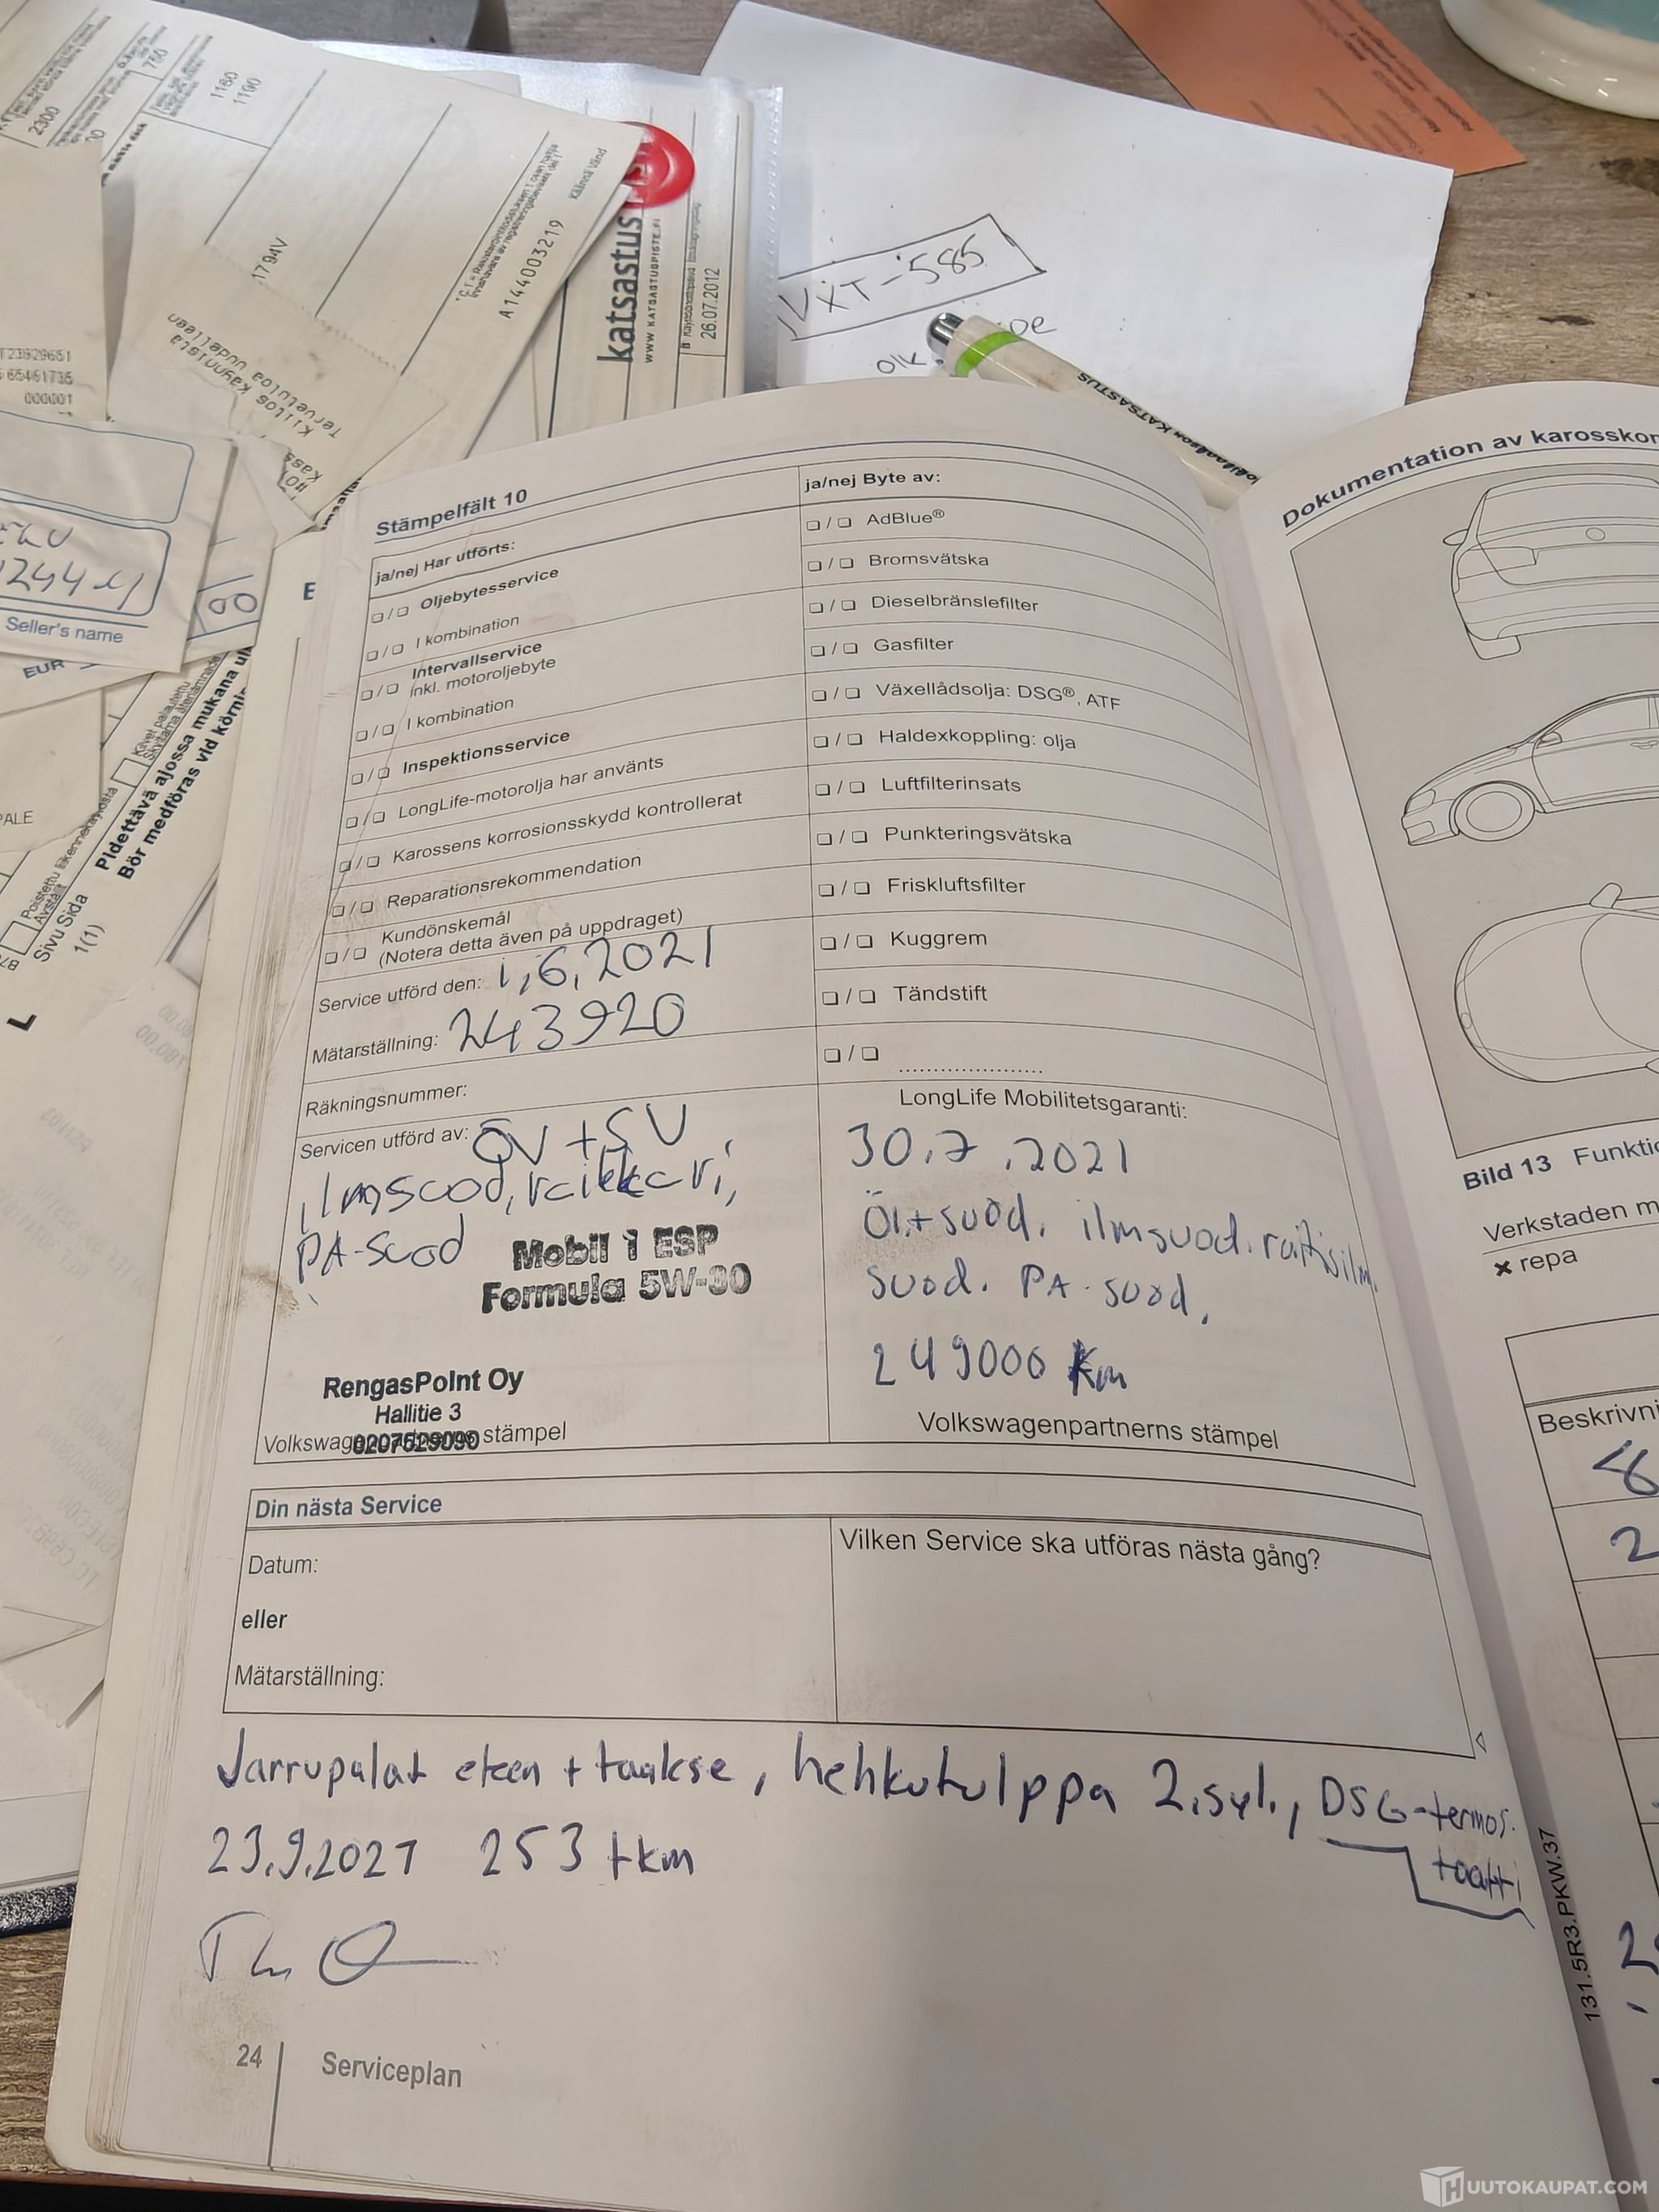 2300
750
1180
1190
1794V
A144003219
Käännä Vänd
katsastus
WWW.KATSASTUSPISTE.FI
26.07.2012
VXT-585
KATSASTUS
T23929651
65461735
000001
Kiitos käynnistä
Tervetuloa uudelleen
Seller's name
EUR
Pidettävä ajossa mukana
Bör medföras vid
Sivu Sida
1(1)
E
Stämpelfält 10
ja/nej Har utförts:
❏/❏ Oljebytesservice
❏/❏ I kombination
❏/❏ Intervallservice
inkl. motoroljebyte
❏/❏ I kombination
❏/❏ Inspektionsservice
❏/❏ LongLife-motorolja har använts
❏/❏ Karossens korrosionsskydd kontrollerat
❏/❏ Reparationsrekommendation
❏/❏ Kundönskemål
(Notera detta även på uppdraget)
Service utförd den: 1,6,2021
Mätarställning: 243920
Räkningsnummer:
Servicen utförd av: ÖV + SU
ilmsuod, raikkari,
PA-suod
Mobil 1 ESP
Formula 5W-30
RengasPoint Oy
Hallitie 3
0207529090
Volkswagenpartnerns stämpel
ja/nej Byte av:
❏/❏ AdBlue®
❏/❏ Bromsvätska
❏/❏ Dieselbränslefilter
❏/❏ Gasfilter
❏/❏ Växellådsolja: DSG®, ATF
❏/❏ Haldexkoppling: olja
❏/❏ Luftfilterinsats
❏/❏ Punkteringsvätska
❏/❏ Friskluftsfilter
❏/❏ Kuggrem
❏/❏ Tändstift
❏/❏ .....................
LongLife Mobilitetsgaranti:
30.7.2021
Öl.+suod. ilmsuod. raitisilm.
suod. PA-suod.
249000 km
Volkswagenpartnerns stämpel
Din nästa Service
Datum:
eller
Mätarställning:
Vilken Service ska utföras nästa gång?
Jarrupalat eteen + taakse, hehkutulppa 2.syl., DSG-termos.
taatti
23.9.2021 253 tkm
24 Serviceplan
131.5R3.PKW.37
Dokumentation av
Bild 13
Verkstaden
× repa
HUUTOKAUPAT.COM